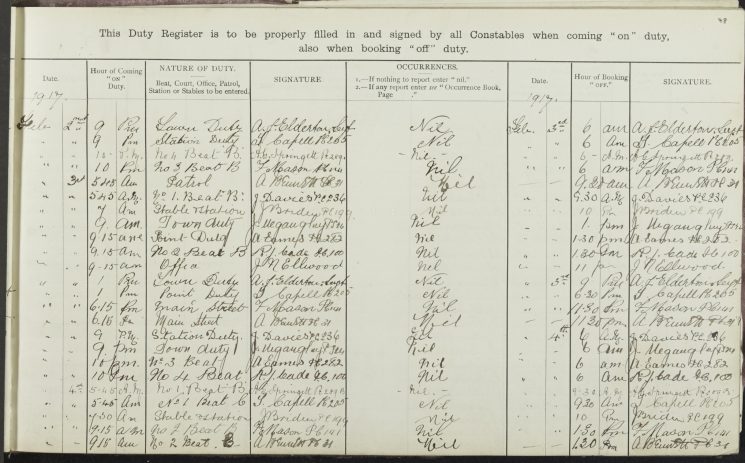 48
This Duty Register is to be properly filled in and signed by all Constables when coming "on" duty,
also when booking "off" duty.
Date. Hour of Coming "ON" Duty. NATURE OF DUTY. Beat, Court, Office, Patrol, Station or Stables to be entered. SIGNATURE. OCCURRENCES. 1.—If nothing to report enter "nil." 2.—If any report enter see "Occurrence Book, Page ." Date. Hour of Booking "OFF" SIGNATURE.
1917. 1917.
Feb. 2nd 9 Pm Town Duty A. J. Elderton, Sergt Nil Feb. 3rd 6 am A. J. Elderton, Sergt
" " 9 Pm Station Duty Capell PC 205 Nil " " 6 Am Capell PC 205
" " 10 - P.M. No 4 Beat B. Springett Nil - " " 6 - A.M. Springett
" " 10 Pm No 3 Beat B F Mason PC 141 Nil " " 6 am F Mason PC 141
" 3rd 5.45 am Patrol A PC 31 Nil " " 9.20 am A PC 31
" " 5.45 A.M. No 1. Beat B. J Davies PC 236 Nil " " 9.30 A.M. J Davies PC 236
" " 7 Am Stable & Station J Briden PC 199 Nil " " 10 Pm J Briden PC 199
" " 9 am Town duty J Nil " " 1 pm J
" " 9.15 am Point Duty A Eames PC 282 Nil " " 1.30 pm A Eames PC 282
" " 9.15 am No 2 Beat B R J Cade PC 100 Nil " " 1.30 Pm R J Cade PC 100
" " 9.15 am Office J N Ellwood Nil " " 11 p J N Ellwood
" " 1 Pm Town Duty A. J. Elderton, Sergt Nil " 3rd 9 Pm A. J. Elderton, Sergt
" " 1 Pm Point Duty Capell PC 205 Nil " " 6.30 Pm Capell PC 205
" " 6.15 Pm Main Street F Mason PC 141 Nil " " 11.30 Pm F Mason PC 141
" " 6.15 Pm Main Street A PC 31 Nil " " 11.20 pm A PC 31
" " 9 P.M. Station Duty. J Davies PC 236 Nil " 4th 6 A.M. J Davies PC 236
" " 9 Pm Town duty J Nil " " 6 am J
" " 10 pm. No. 3 Beat A Eames PC 282 Nil " " 6 am A Eames PC 282
" " 10 Pm No 4 Beat R J Cade PC 100 Nil " " 6 am R J Cade PC 100
" 4th 5-45 A.M. No 1 Beat B. Springett Nil - " " 9-30 A.M. Springett
" " 5.45 Am No 1 Beat C Capell PC 205 Nil " " 9.30 Am Capell PC 205
" " 7.30 Am Stable & Station J Briden PC 199 Nil " " 10 Pm J Briden PC 199
" " 9.15 am No 2 Beat B F Mason PC 141 Nil " " 1.30 Pm F Mason PC 141
" " 9.15 am No 2 Beat C A PC 31 Nil " " 1.20 Pm A PC 31